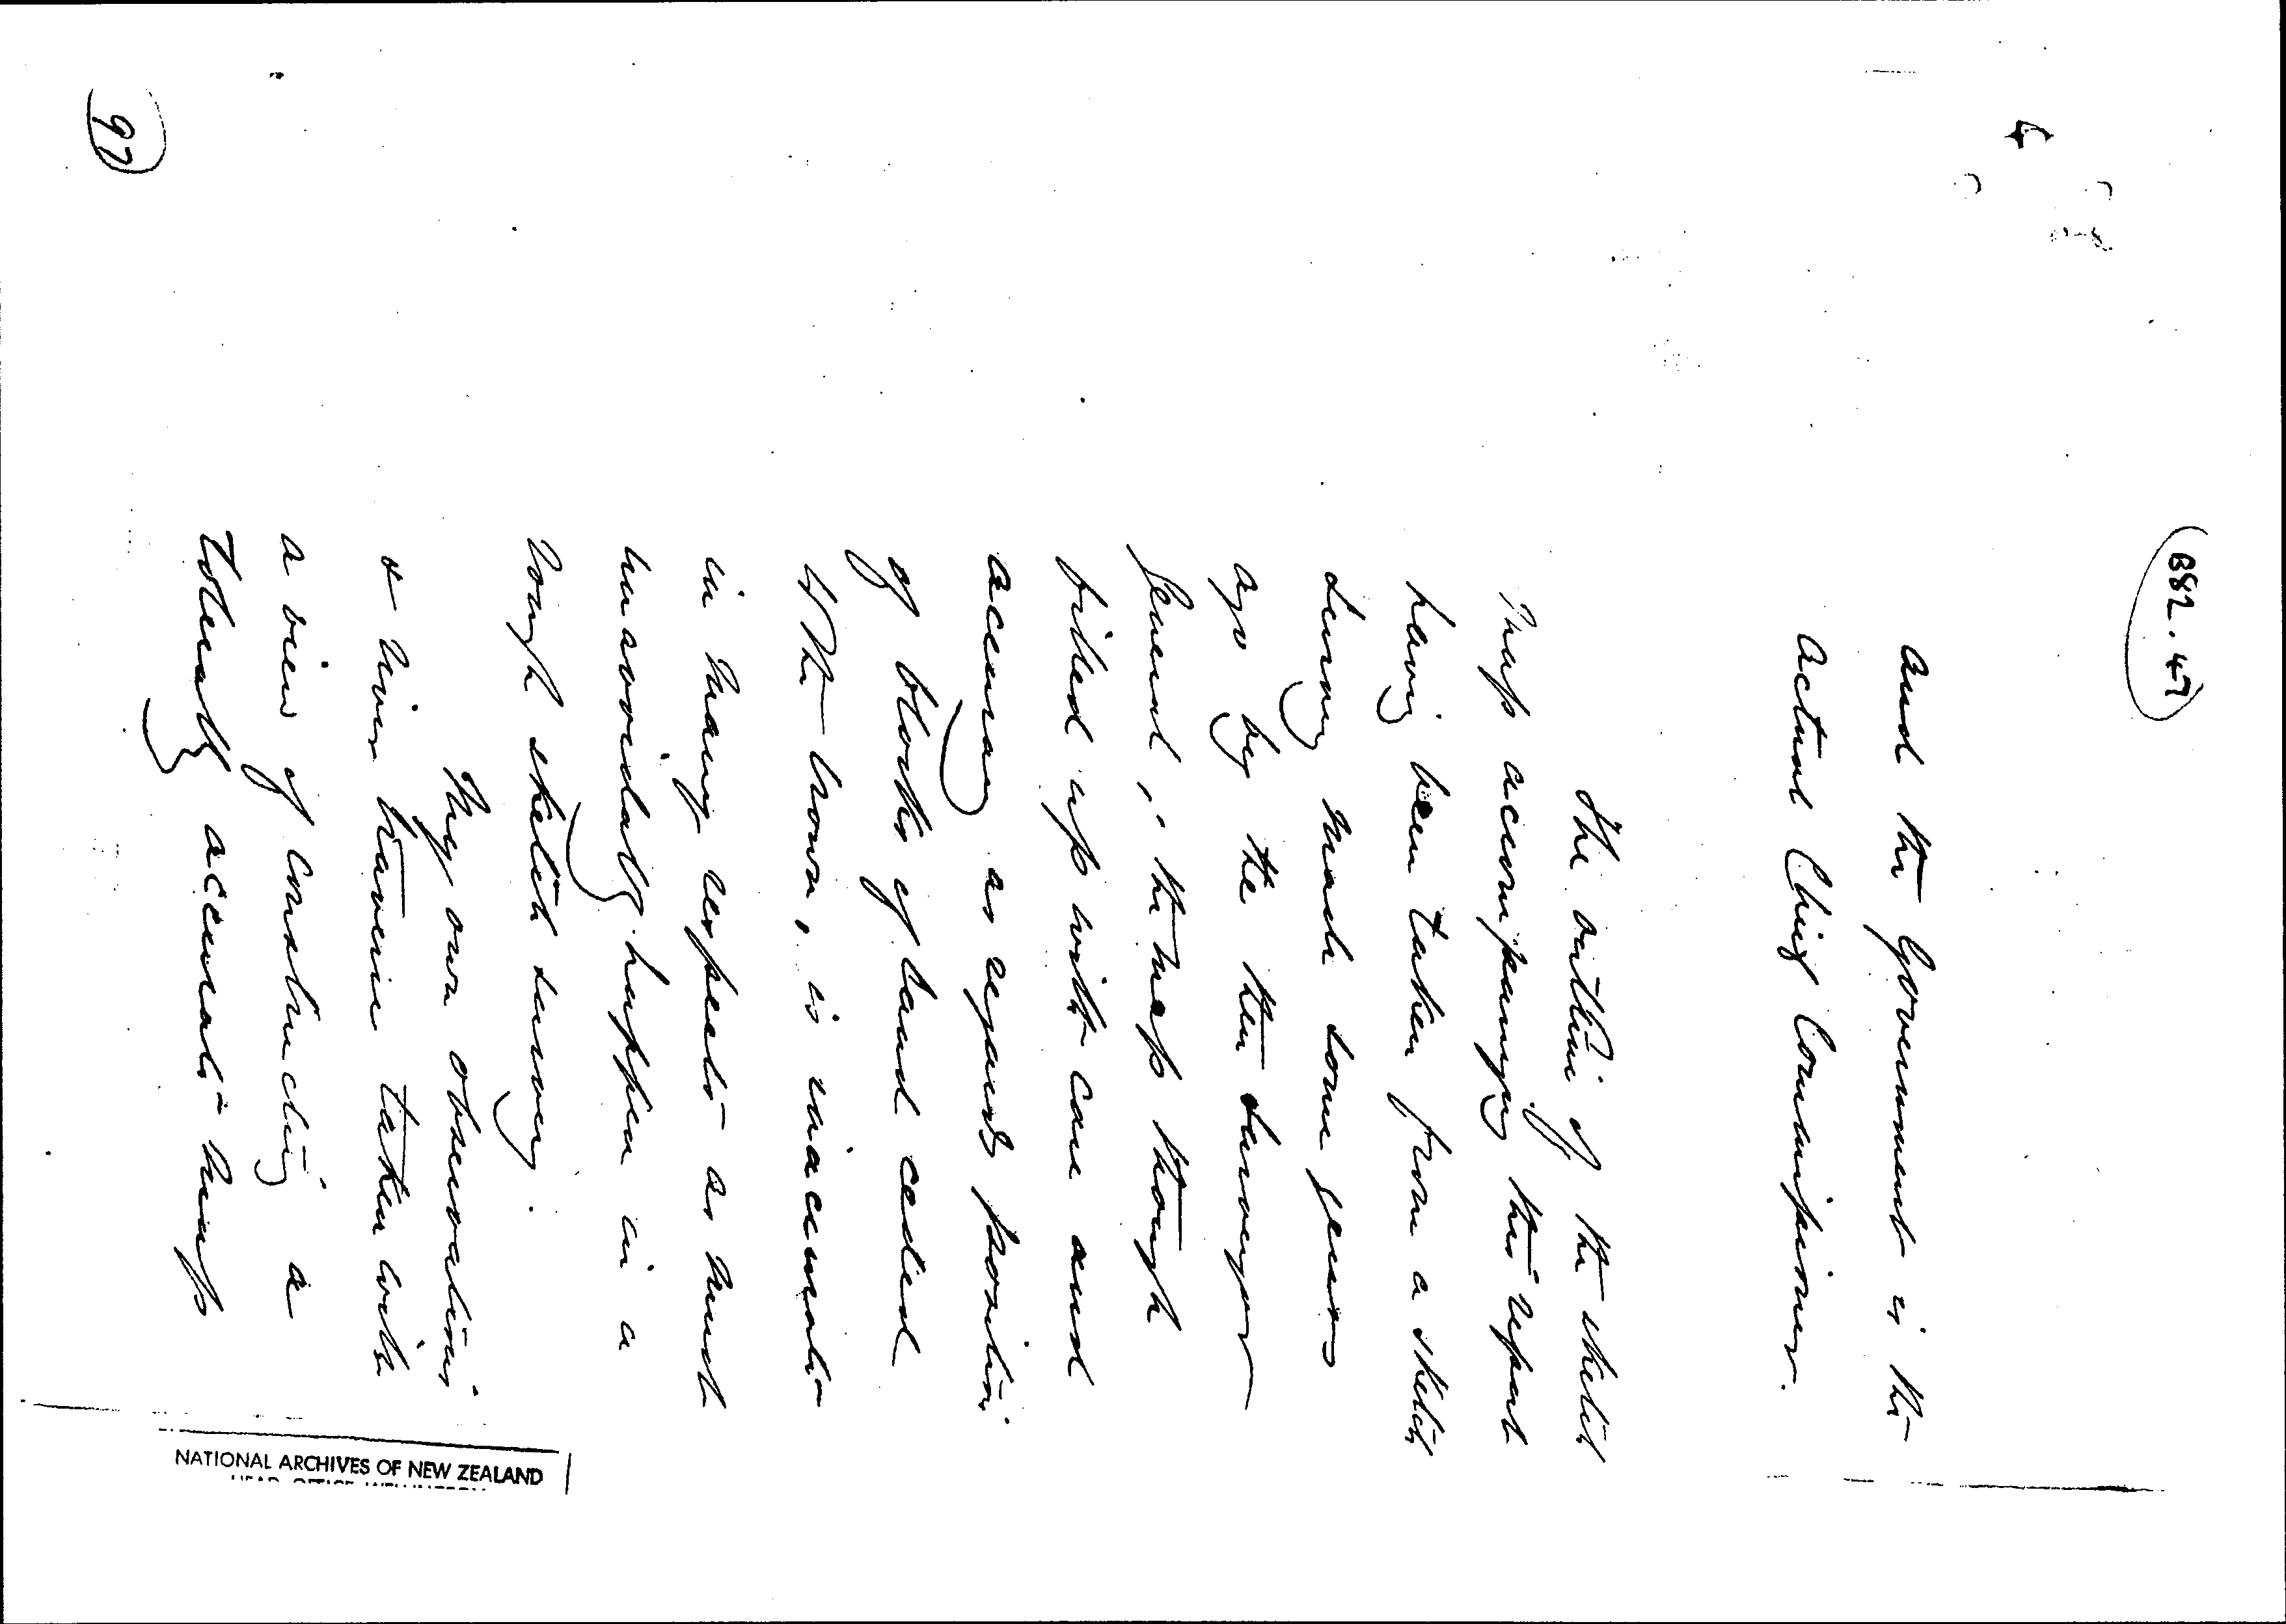 B82.47
4
and the Government is the
actual Chief Commissioner.
The outline of the sketch
map accompanying this report
having been taken from a sketch
survey made some years
ago by the then Surveyor
General, the map though
filled up with care and
accuracy as regards position
of blocks of land ceded
to the Crown, is inaccurate
in many respects as must
unavoidably happen in a
rough sketch survey.
My own observations
& river traverse taken with
a view of constructing a
tolerably accurate map
97
NATIONAL ARCHIVES OF NEW ZEALAND
HEAD OFFICE WELLINGTON